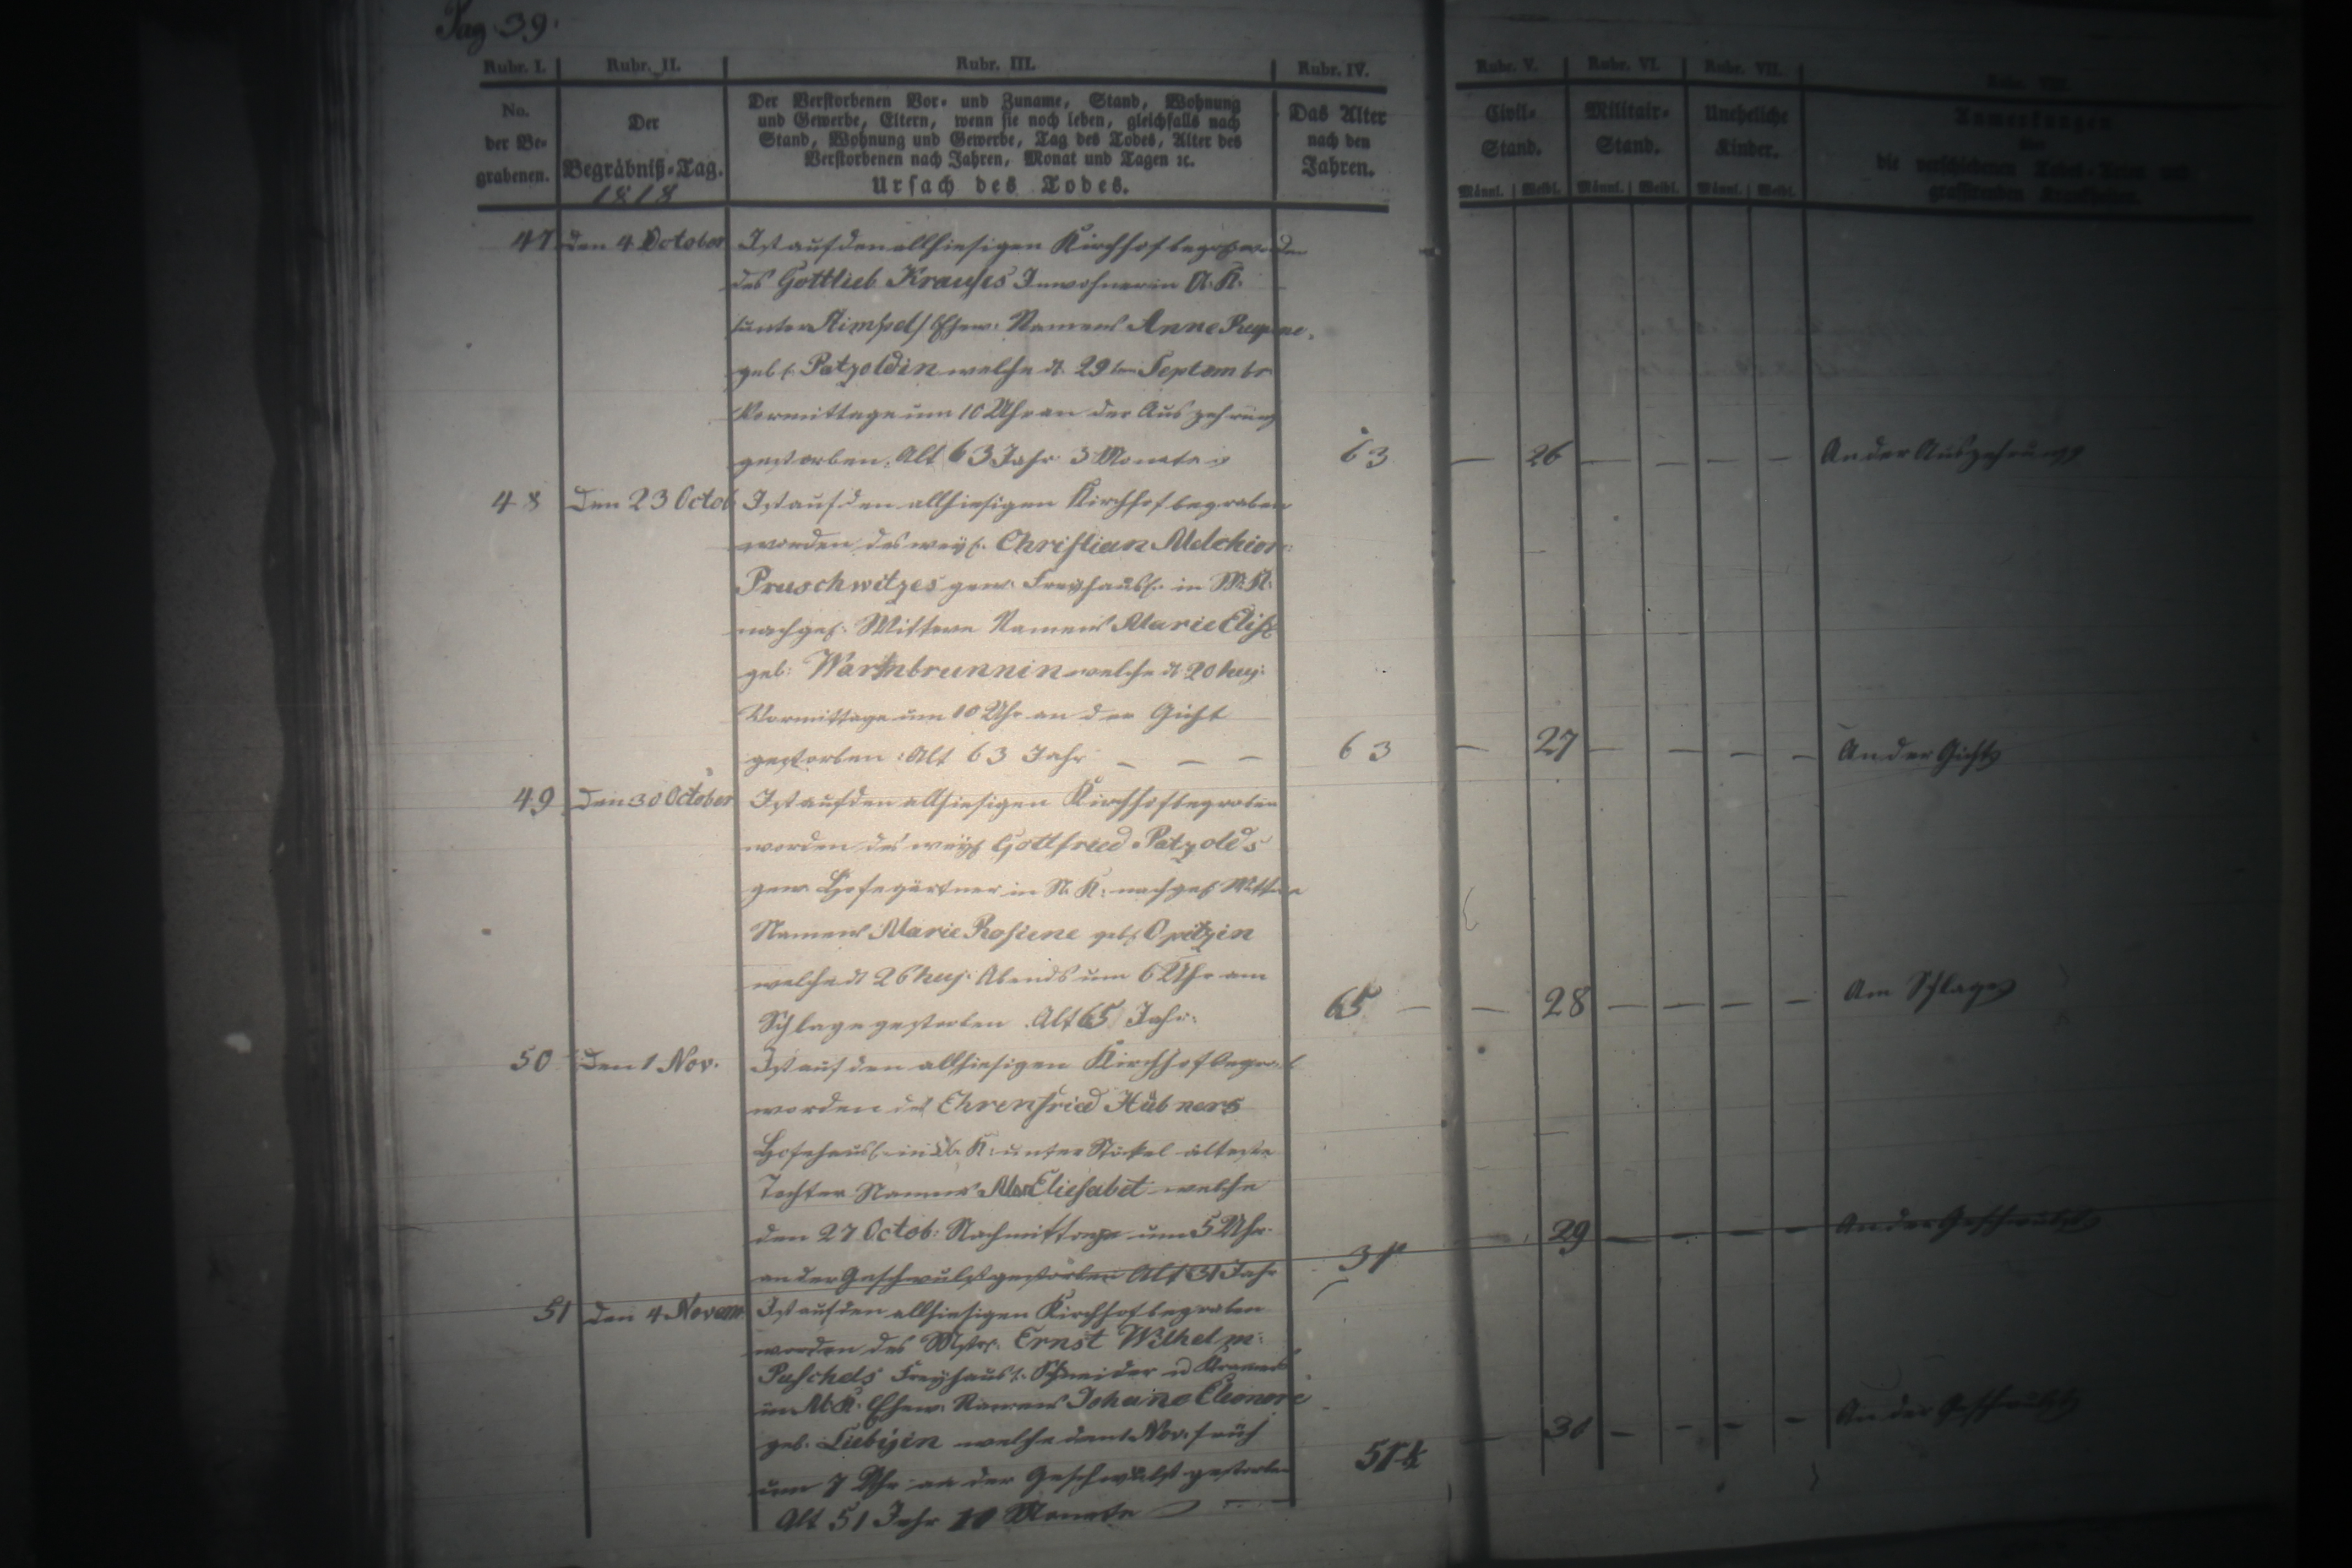 Pag. 39.
Rubr. I. Rubr. II. Rubr. III. Rubr. IV. Rubr. V. Rubr. VI. Rubr. VII. Rubr. VIII.
No. der Be- grabenen.
Der Begräbniß-Tag. 1818
Der Verstorbenen Vor- und Zuname, Stand, Wohnung
und Gewerbe, Eltern, wenn sie noch leben, gleichfalls nach
Stand, Wohnung und Gewerbe, Tag des Todes, Alter des
Verstorbenen nach Jahren, Monat und Tagen ꝛc.
Ursach des Todes.
Das Alter nach den Jahren.
Civil- Stand. Männl. Weibl.
Militair- Stand. Männl. Weibl.
Uneheliche Kinder. Männl. Weibl.
Anmerkungen
über
die verschiedenen Todes-Arten und
grassirenden Krankheiten.
47 den 4 October Ist auf den allhiesigen Kirchhof begr. worden
des Gottlieb Krauses Inwohner in
unter Ehew. Namens Anne
geb. Patzoldin welche d. 29ten Septembr
Vormittage um 10 Uhr an der Auszehrung
gestorben. Alt 63 Jahr 3 Monate 63 — 26 — — — — An der Auszehrung
48 Den 23 Octob Ist auf den allhiesigen Kirchhof begraben
worden des weyl. Christian Melchior
Pruschwitzes gew. Freyhäusl. in
nachgel. Wittwe Namens Marie Elis.
geb: Warmbrunnin welche d. 20 huj:
Vormittage um 10 Uhr an der Gicht
gestorben: Alt 63 Jahr — — — 63 — 27 — — — — An der Gicht
49 Den 30 October Ist auf den allhiesigen Kirchhof begraben
worden des weyl. Gottfried Patzolds
gew. Hofegärtner in N. K: nachgel. Wittwe
Namens Marie Rosiene geb. Opitzin
welche d. 26 huj: Abends um 6 Uhr am
Schlage gestorben. Alt 65 Jahr. 65 — — 28 — — — — Am Schlage
50 Den 1 Nov. Ist auf den allhiesigen Kirchhof begrab
worden des Ehrenfried Hübners
Hofehäusl. in K: unter älteste
Tochter Namens Mar Eliesabet welche
den 27 Octob: Nachmittage um 5 Uhr
an der Geschwulst gestorben Alt 31 Jahr 31 29 — — — — An der Geschwulst
51 den 4 Novem Ist auf den allhiesigen Kirchhof begraben
worden des Mstr. Ernst Wilhelm
Puschels Freyhäusl. Schneider u Kramer
in Ehew. Namens Johane Eleonore
geb. Liebigin welche den 1 Nov. früh
um 7 Uhr an der Geschwulst gestorben
Alt 51 Jahr 10 Monate 51 30 — — — — An der Geschwulst